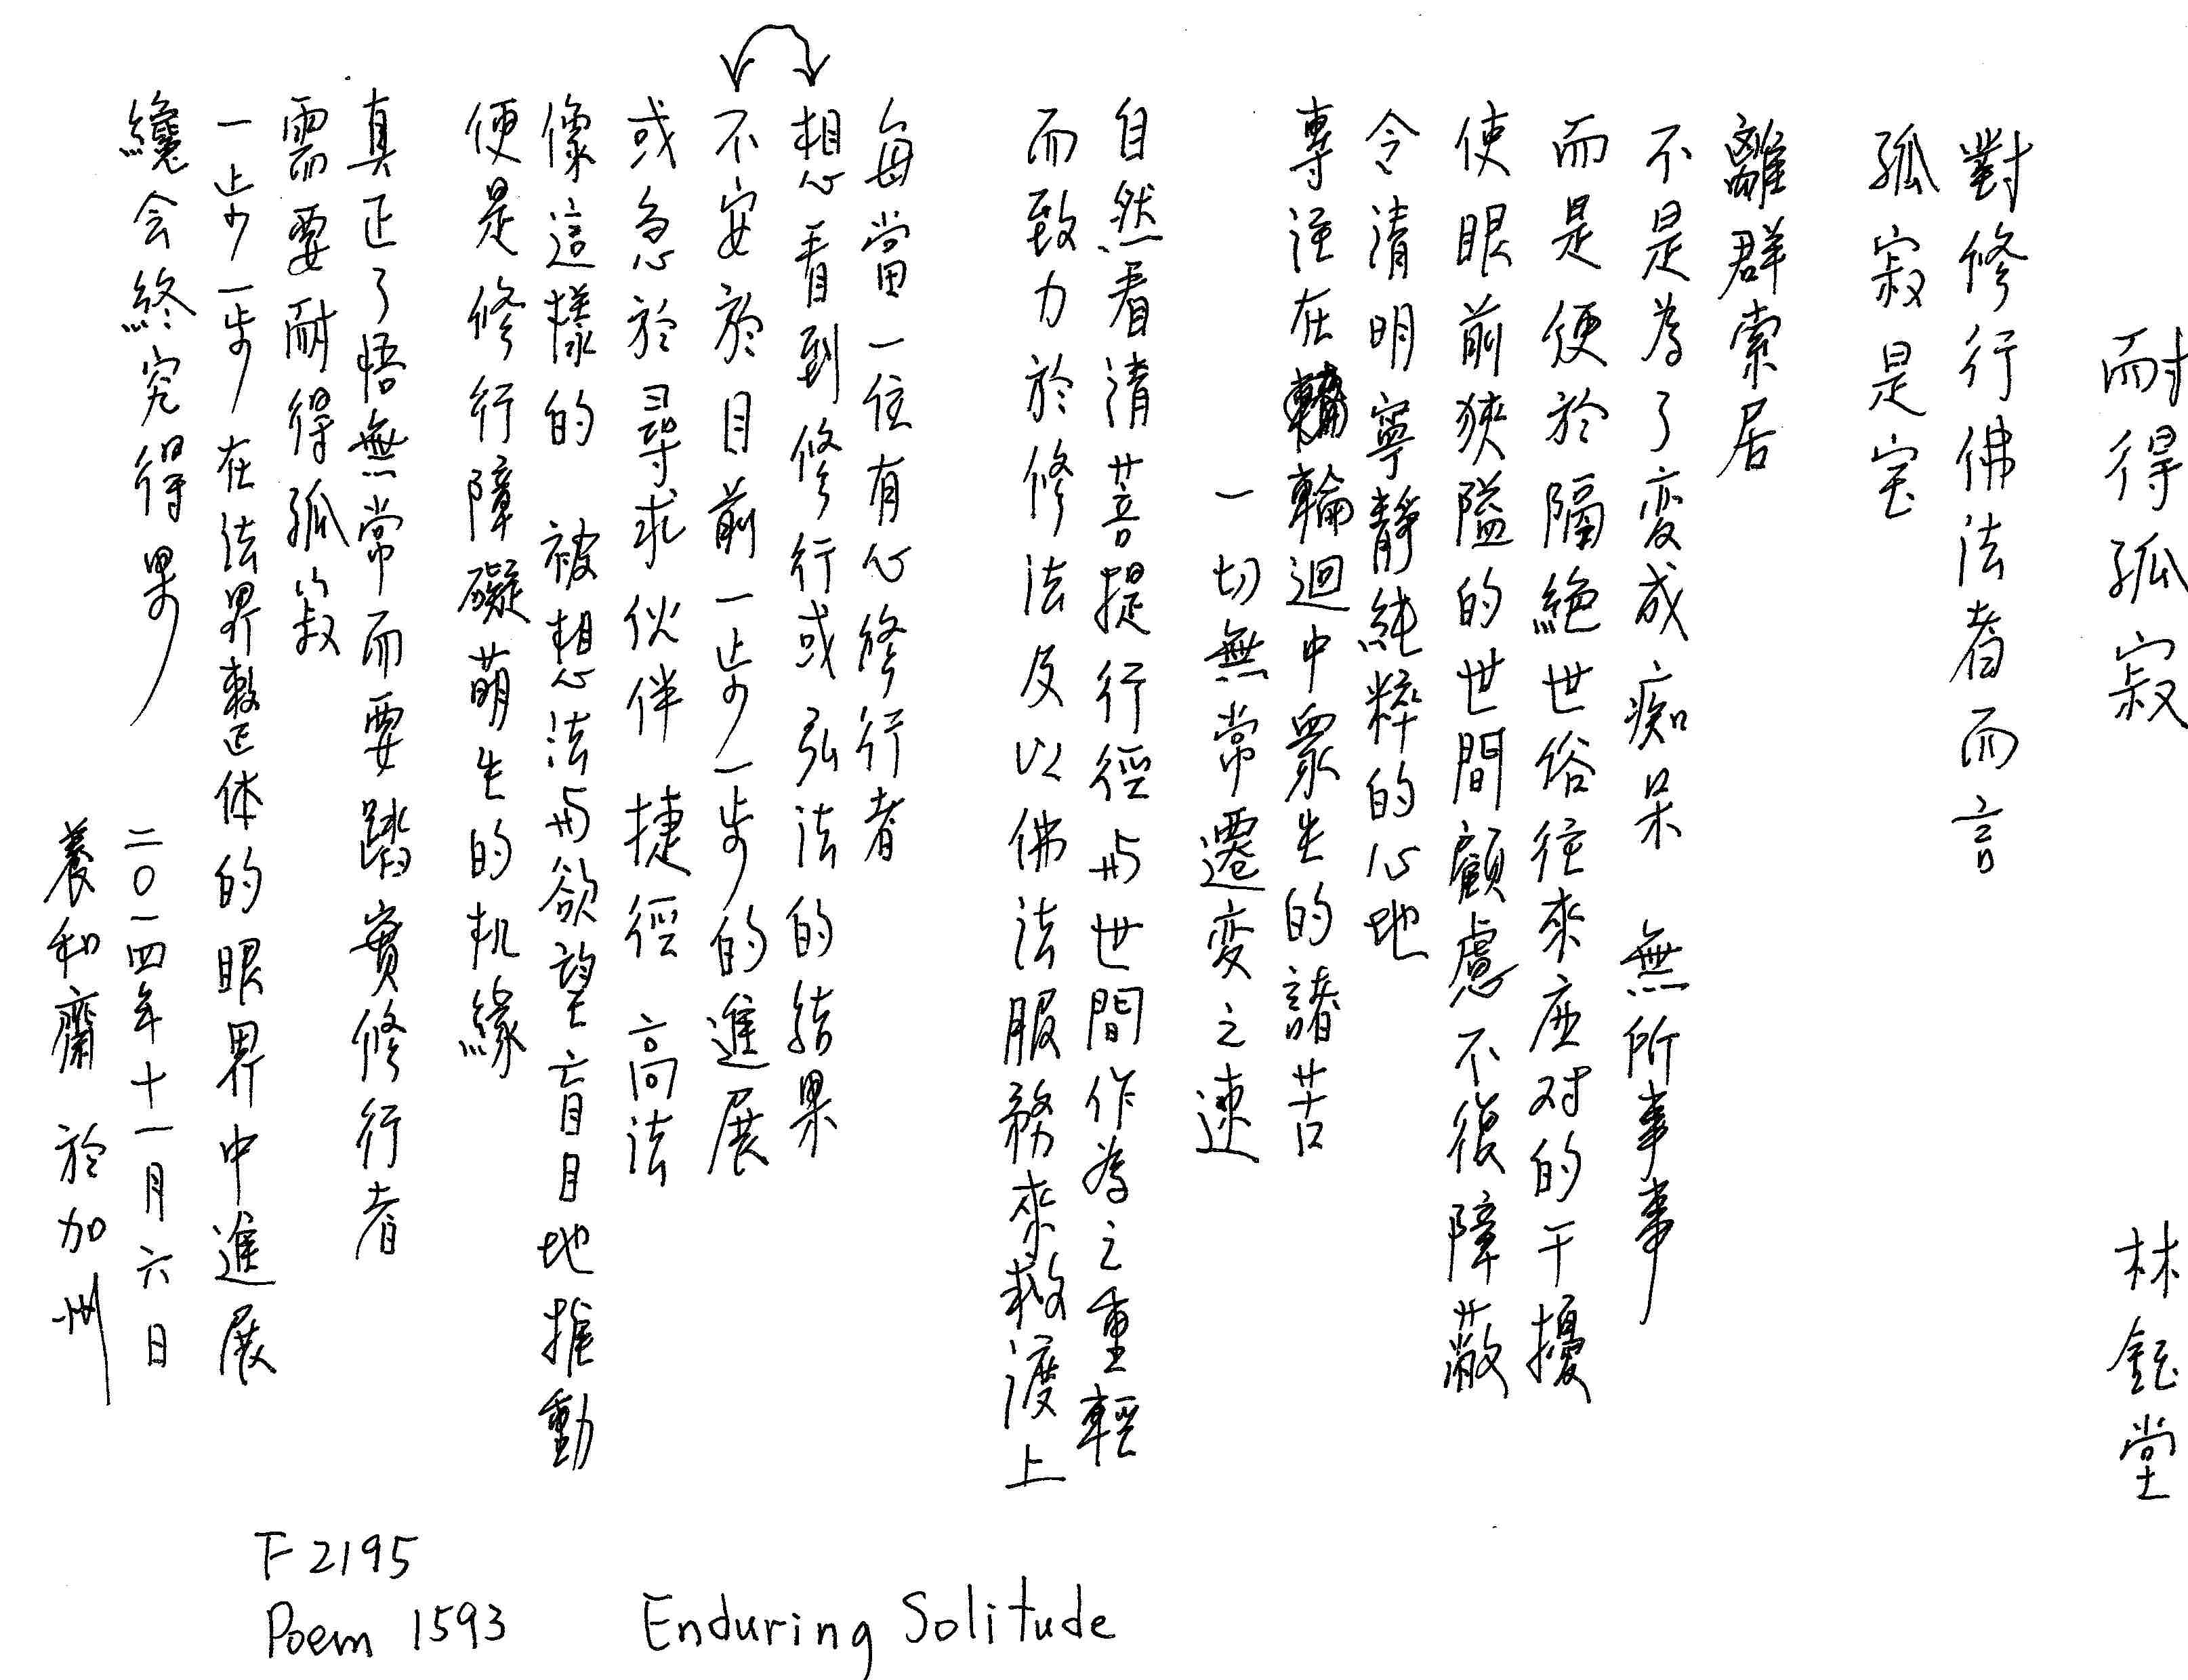 耐得孤寂 林鈺堂
對修行佛法者而言
孤寂是宝
離群索居
不是為了变成痴呆 無所事事
而是便於隔絕世俗往來应对的干擾
使眼前狹隘的世間顧慮不復障蔽
令清明寧靜純粹的心地
專注在輪迴中眾生的諸苦
一切無常遷变之速
自然看清菩提行徑与世間作為之重輕
而致力於修法及以佛法服務來救渡上
每當一位有心修行者
想看到修行或弘法的結果
不安於目前一步一步的進展
或急於尋求伙伴 捷徑 高法
像這樣的 被想法与欲望盲目地推動
便是修行障礙萌生的机緣
真正了悟無常而要踏實修行者
需要耐得孤寂
一步一步在法界整体的眼界中進展
纔会終究得果
二〇一四年十一月六日
養和齋 於加州
F 2195
Poem 1593 Enduring Solitude